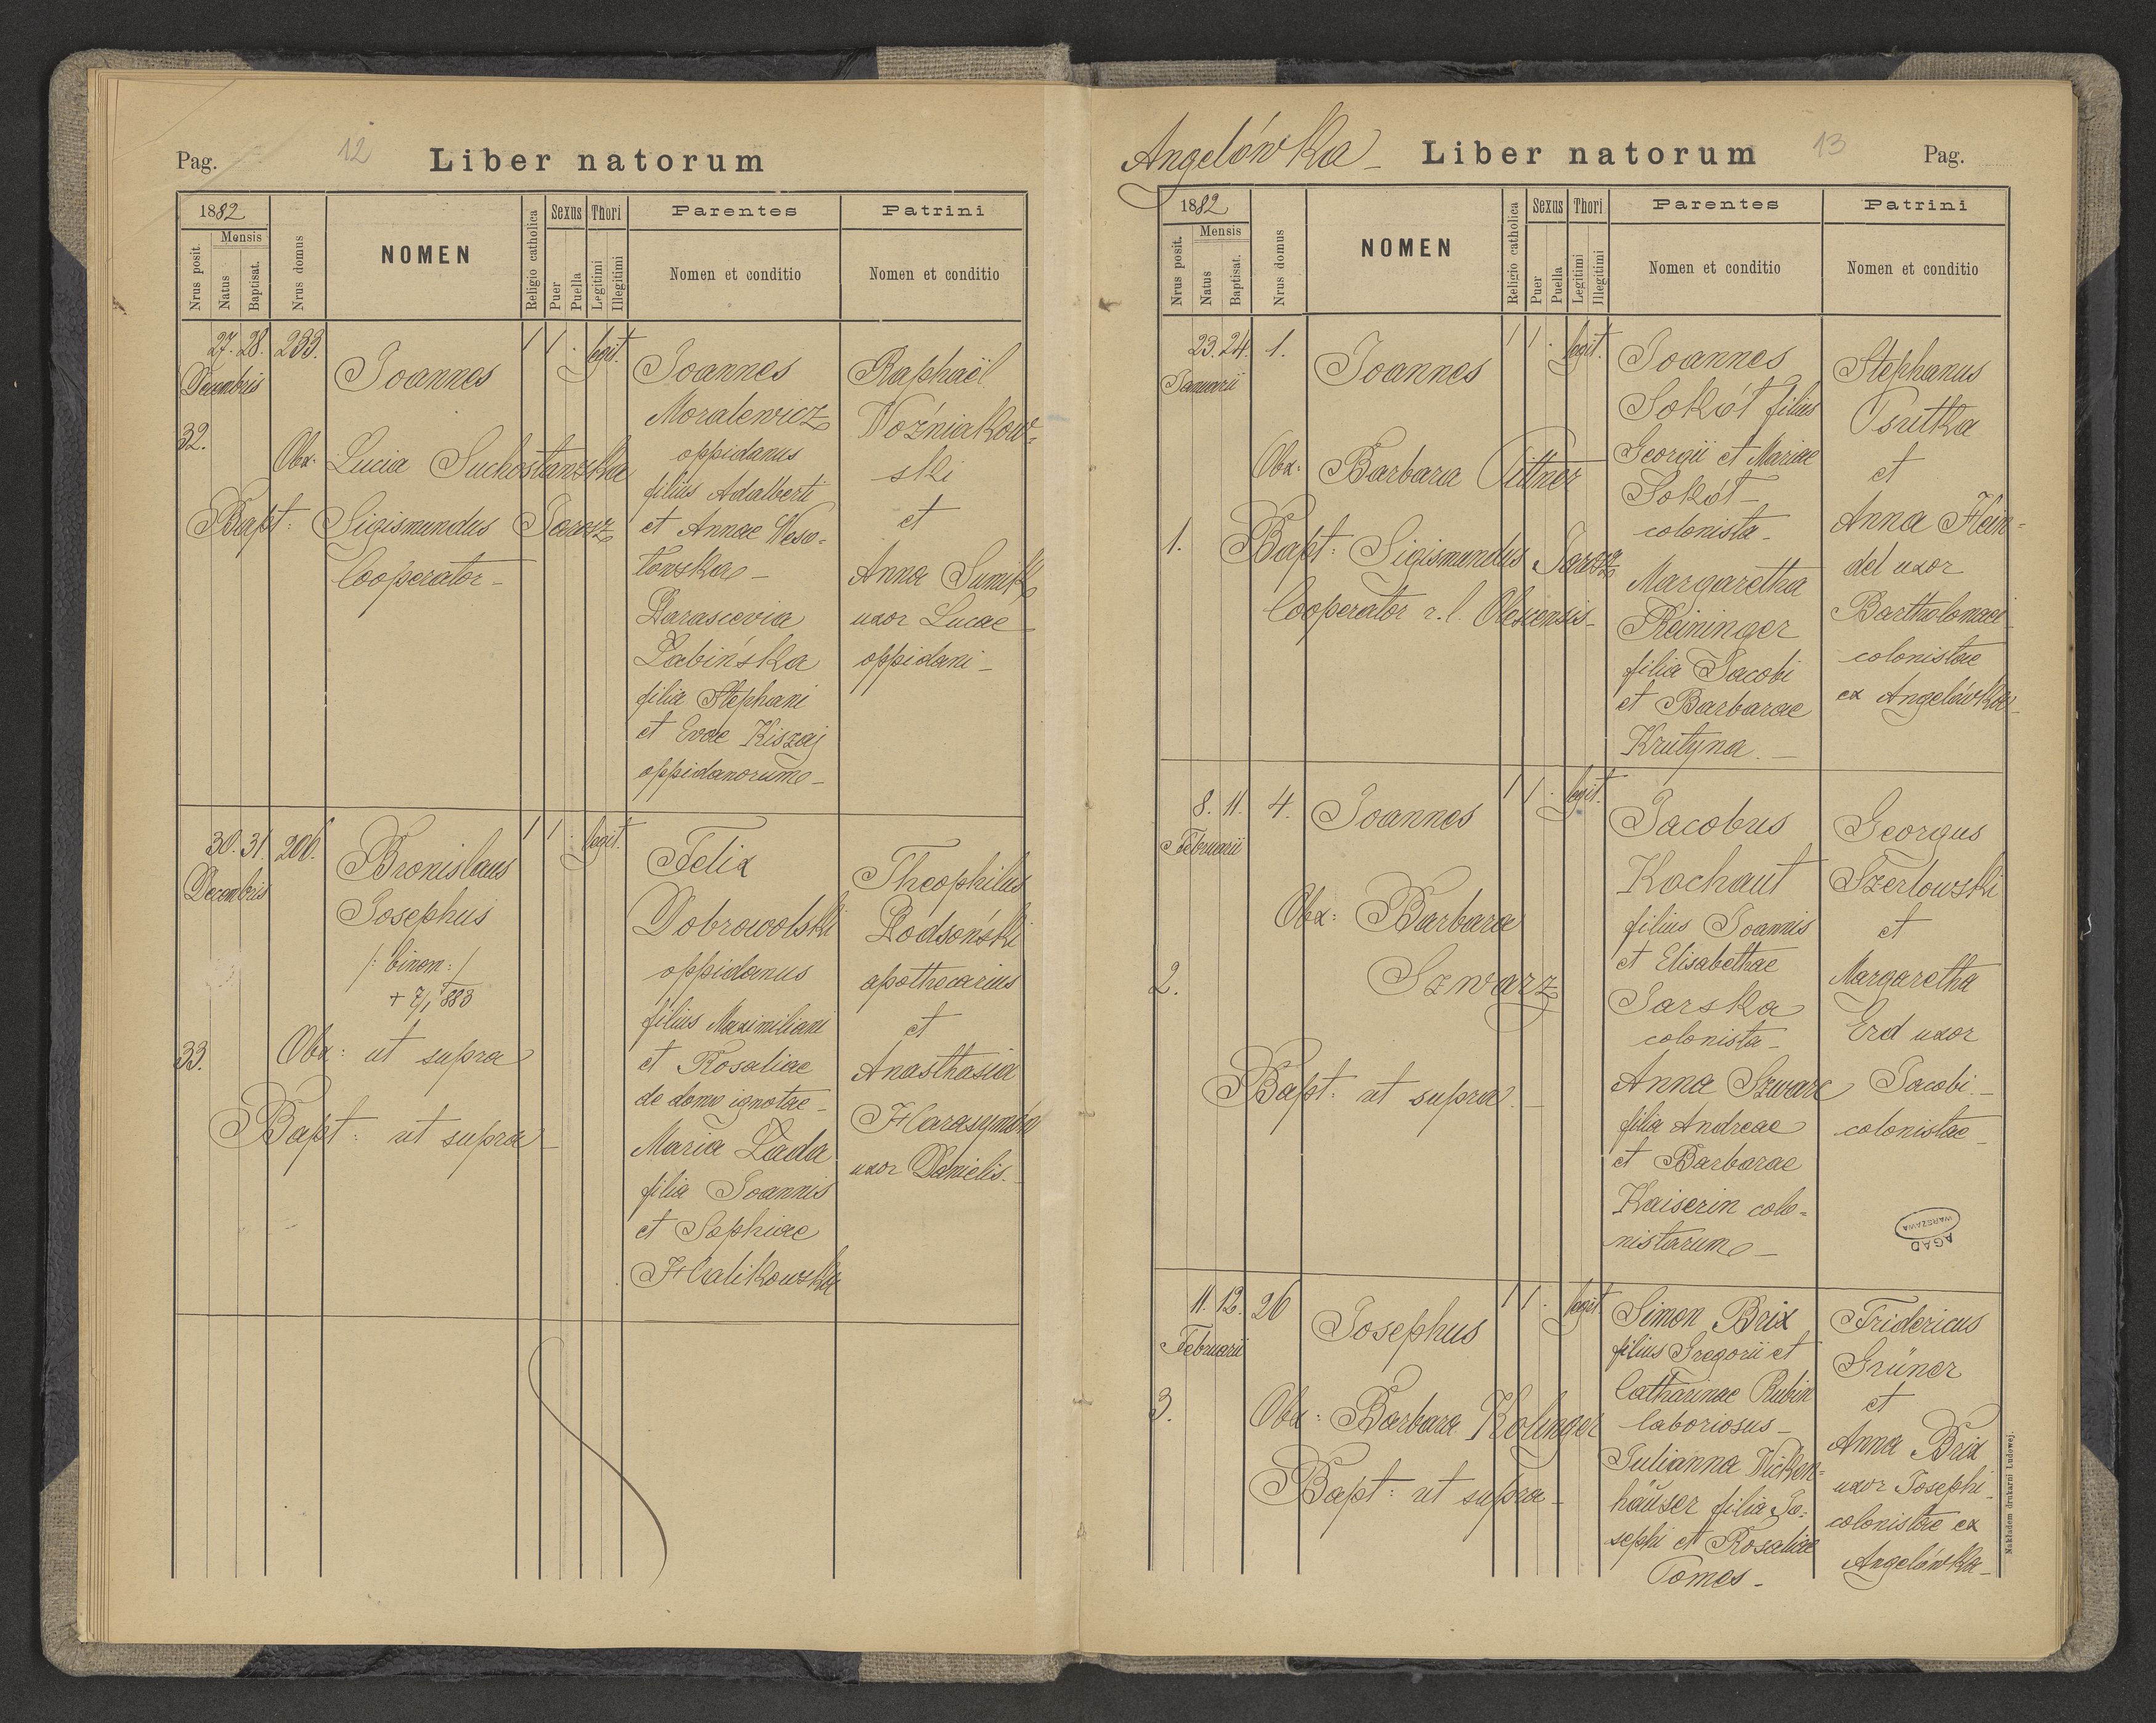 Pag. 12 Liber natorum
1882
Mensis
Nrus posit.
Natus
Baptisat.
Nrus domus
NOMEN
Religio catholica
Sexus
Puer
Puella
Thori
Legitimi
Illegitimi
Parentes
Nomen et conditio
Patrini
Nomen et conditio
27. 28. 233.
Decembris
32.
Joannes
Obx. Lucia Suchostawska
Bapt: Sigismundus Jarosz
Cooperator -
1 1 . legit.
Joannes
Moralewicz
oppidanus
filius Adalberti
et Annae Weso=
łowska -
Parascevia
Łabińska
filia Stephani
et Evae Kiszaj
oppidanorum -
Raphaël
Woźniakow=
ski
et
Anna Sumik
uxor Lucae
oppidani -
30. 31. 206.
Decembris
33.
Bronislaus
Josephus
/: binom: /
+ 7/1 883
Obx: ut supra
Bapt: ut supra -
1 1 . legit.
Felix
Dobrowolski
oppidanus
filius Maximiliani
et Rosaliae
de domo ignotae -
Maria Łada
filia Joannis
et Sophiae
Halikowska
Theophilus
Podsoński
apothecarius
et
Anasthasia
Harasymów
uxor Danielis. -
Angelówka - Liber natorum 13 Pag.
1882
Mensis
Nrus posit.
Natus
Baptisat.
Nrus domus
NOMEN
Religio catholica
Sexus
Puer
Puella
Thori
Legitimi
Illegitimi
Parentes
Nomen et conditio
Patrini
Nomen et conditio
23. 24. 1.
Januarii
1.
Joannes
Obx: Barbara Tittner
Bapt: Sigismundus Jarosz
Cooperator r. l. Olescensis -
1 1 . legit.
Joannes
Sokół filius
Georgii et Mariae
Sokół -
colonista -
Margaretha
Reininger
filia Jacobi
et Barbarae
Krutyna. -
Stephanus
Psutka
et
Anna Hein=
del uxor
Bartholomaei
colonistae
ex Angelówka -
8. 11. 4.
Februarii
2.
Joannes
Obx: Barbara
Szwarz
Bapt: ut supra. -
1 1 . legit.
Jacobus
Kochaut
filius Joannis
et Elisabethae
Jarska
colonista -
Anna Szwarc
filia Andreae
et Barbarae
Kaiserin colo=
nistarum -
Georgus
Szerlowski
et
Margaretha
Erd uxor
Jacobi. -
colonistae -
AGAD
WARSZAWA
11. 12. 26
Februarii
3.
Josephus
Obx: Barbara Kolinger
Bapt: ut supra -
1 1 . legit.
Simon Brix
filius Gregorii et
Catharinae Rubin
laboriosus -
Julianna Wicken=
häuser filia Jo=
sephi et Rosaliae
Tomes -
Fridericus
Grüner
et
Anna Brix
uxor Josephi -
colonistae ex
Angelówka -
Nakładem drukarni Ludowej.